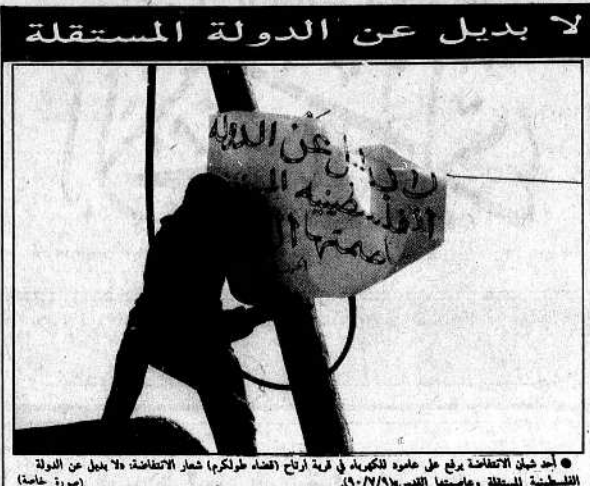 لا بديل عن الدولة المستقلة
لا بديل عن الدوله
الفلسطينيه
عاصمتها
● أحد شبان الانتفاضة يرفع على عامود للكهرباء في قرية ارتاح (قضاء طولكرم) شعار الانتفاضة: «لا بديل عن الدولة
الفلسطينية المستقلة وعاصمتها القدس» (٩٠/٧/٩).
(صورة خاصة)